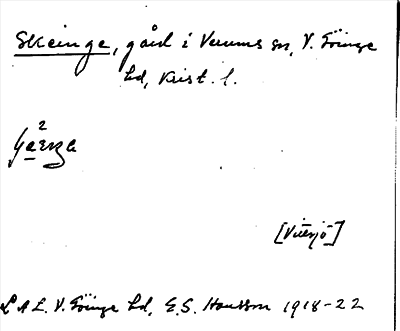 Skeinge, gård i Verums sn, V. Göinge
hd, Krist. l.
[Vittsjö]
L A L. V. Göinge hd, E.S. Hansson 1918-22